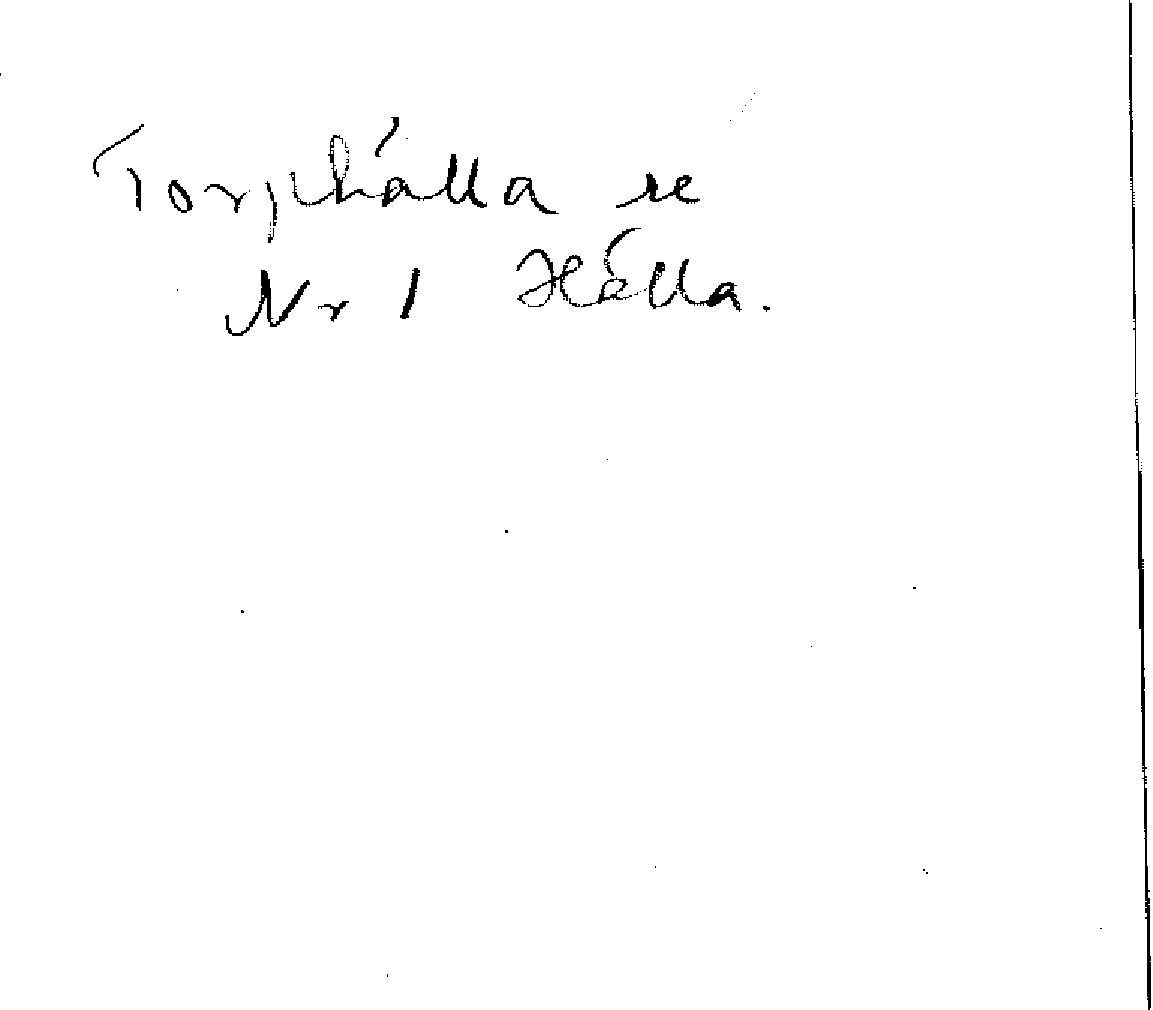 Torphälla se
Nr 1 Hälla.